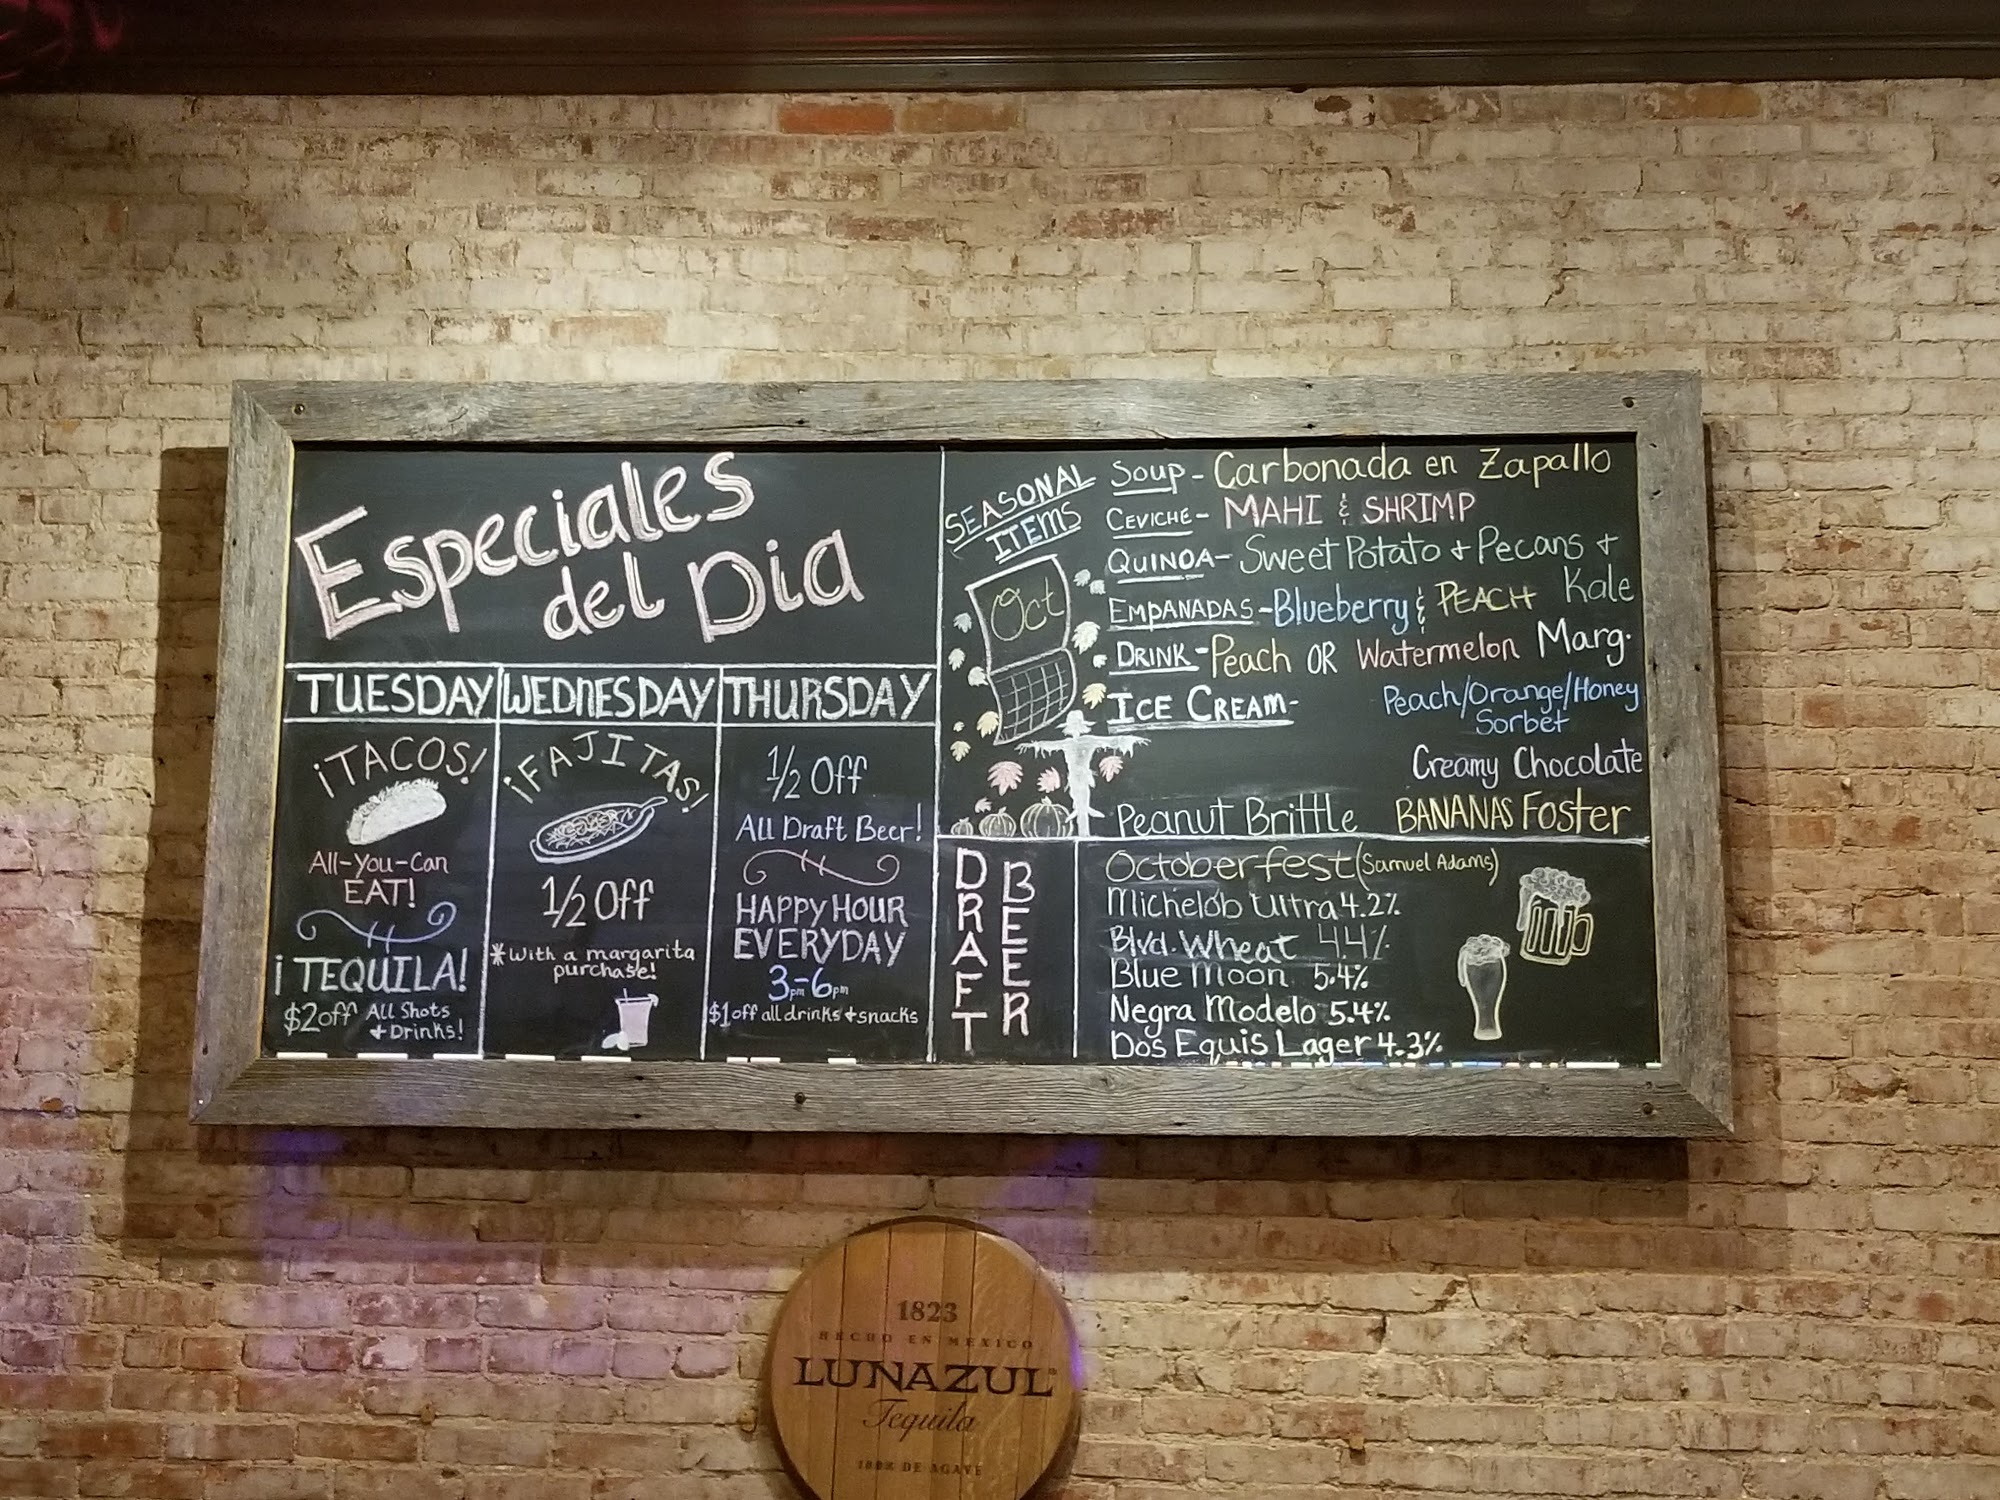 Especiales
del Dia
TUESDAY
¡TACOS!
All-You-Can
EAT!
¡TEQUILA!
$2 off All Shots
+ Drinks!
WEDNESDAY
¡FAJITAS!
1/2 Off
*With a margarita
purchase!
THURSDAY
1/2 Off
All Draft Beer!
HAPPY HOUR
EVERYDAY
3pm-6pm
$1 off all drinks + snacks
SEASONAL
ITEMS
Oct
Soup - Carbonada en Zapallo
CEVICHE - MAHI & SHRIMP
QUINOA - Sweet Potato + Pecans +
Kale
EMPANADAS - Blueberry & PEACH
DRINK - Peach OR Watermelon Marg.
ICE CREAM - Peach/Orange/Honey
Sorbet
Creamy Chocolate
Peanut Brittle BANANAS Foster
DRAFT
BEER
Octoberfest (Samuel Adams)
Michelob Ultra 4.2%
Blvd. Wheat 4.4%
Blue Moon 5.4%
Negra Modelo 5.4%
Dos Equis Lager 4.3%
1823
HECHO EN MEXICO
LUNAZUL
Tequila
100% DE AGAVE